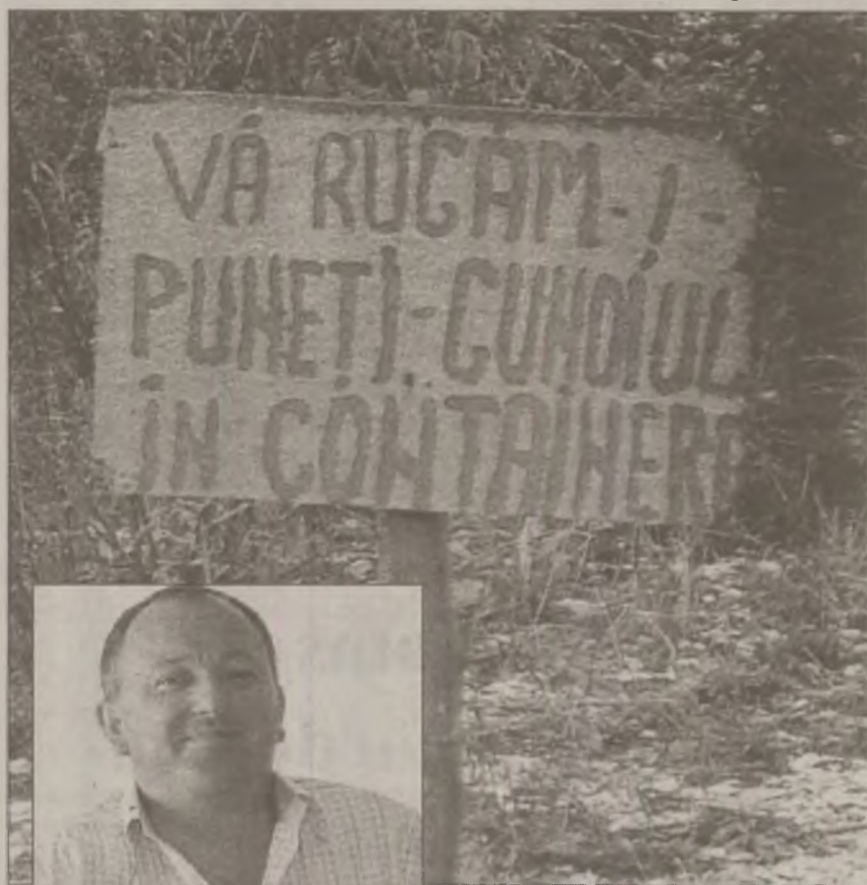 VĂ RUGĂM-!-
PUNEȚI-GUNOIUL
ÎN CONTAINERE